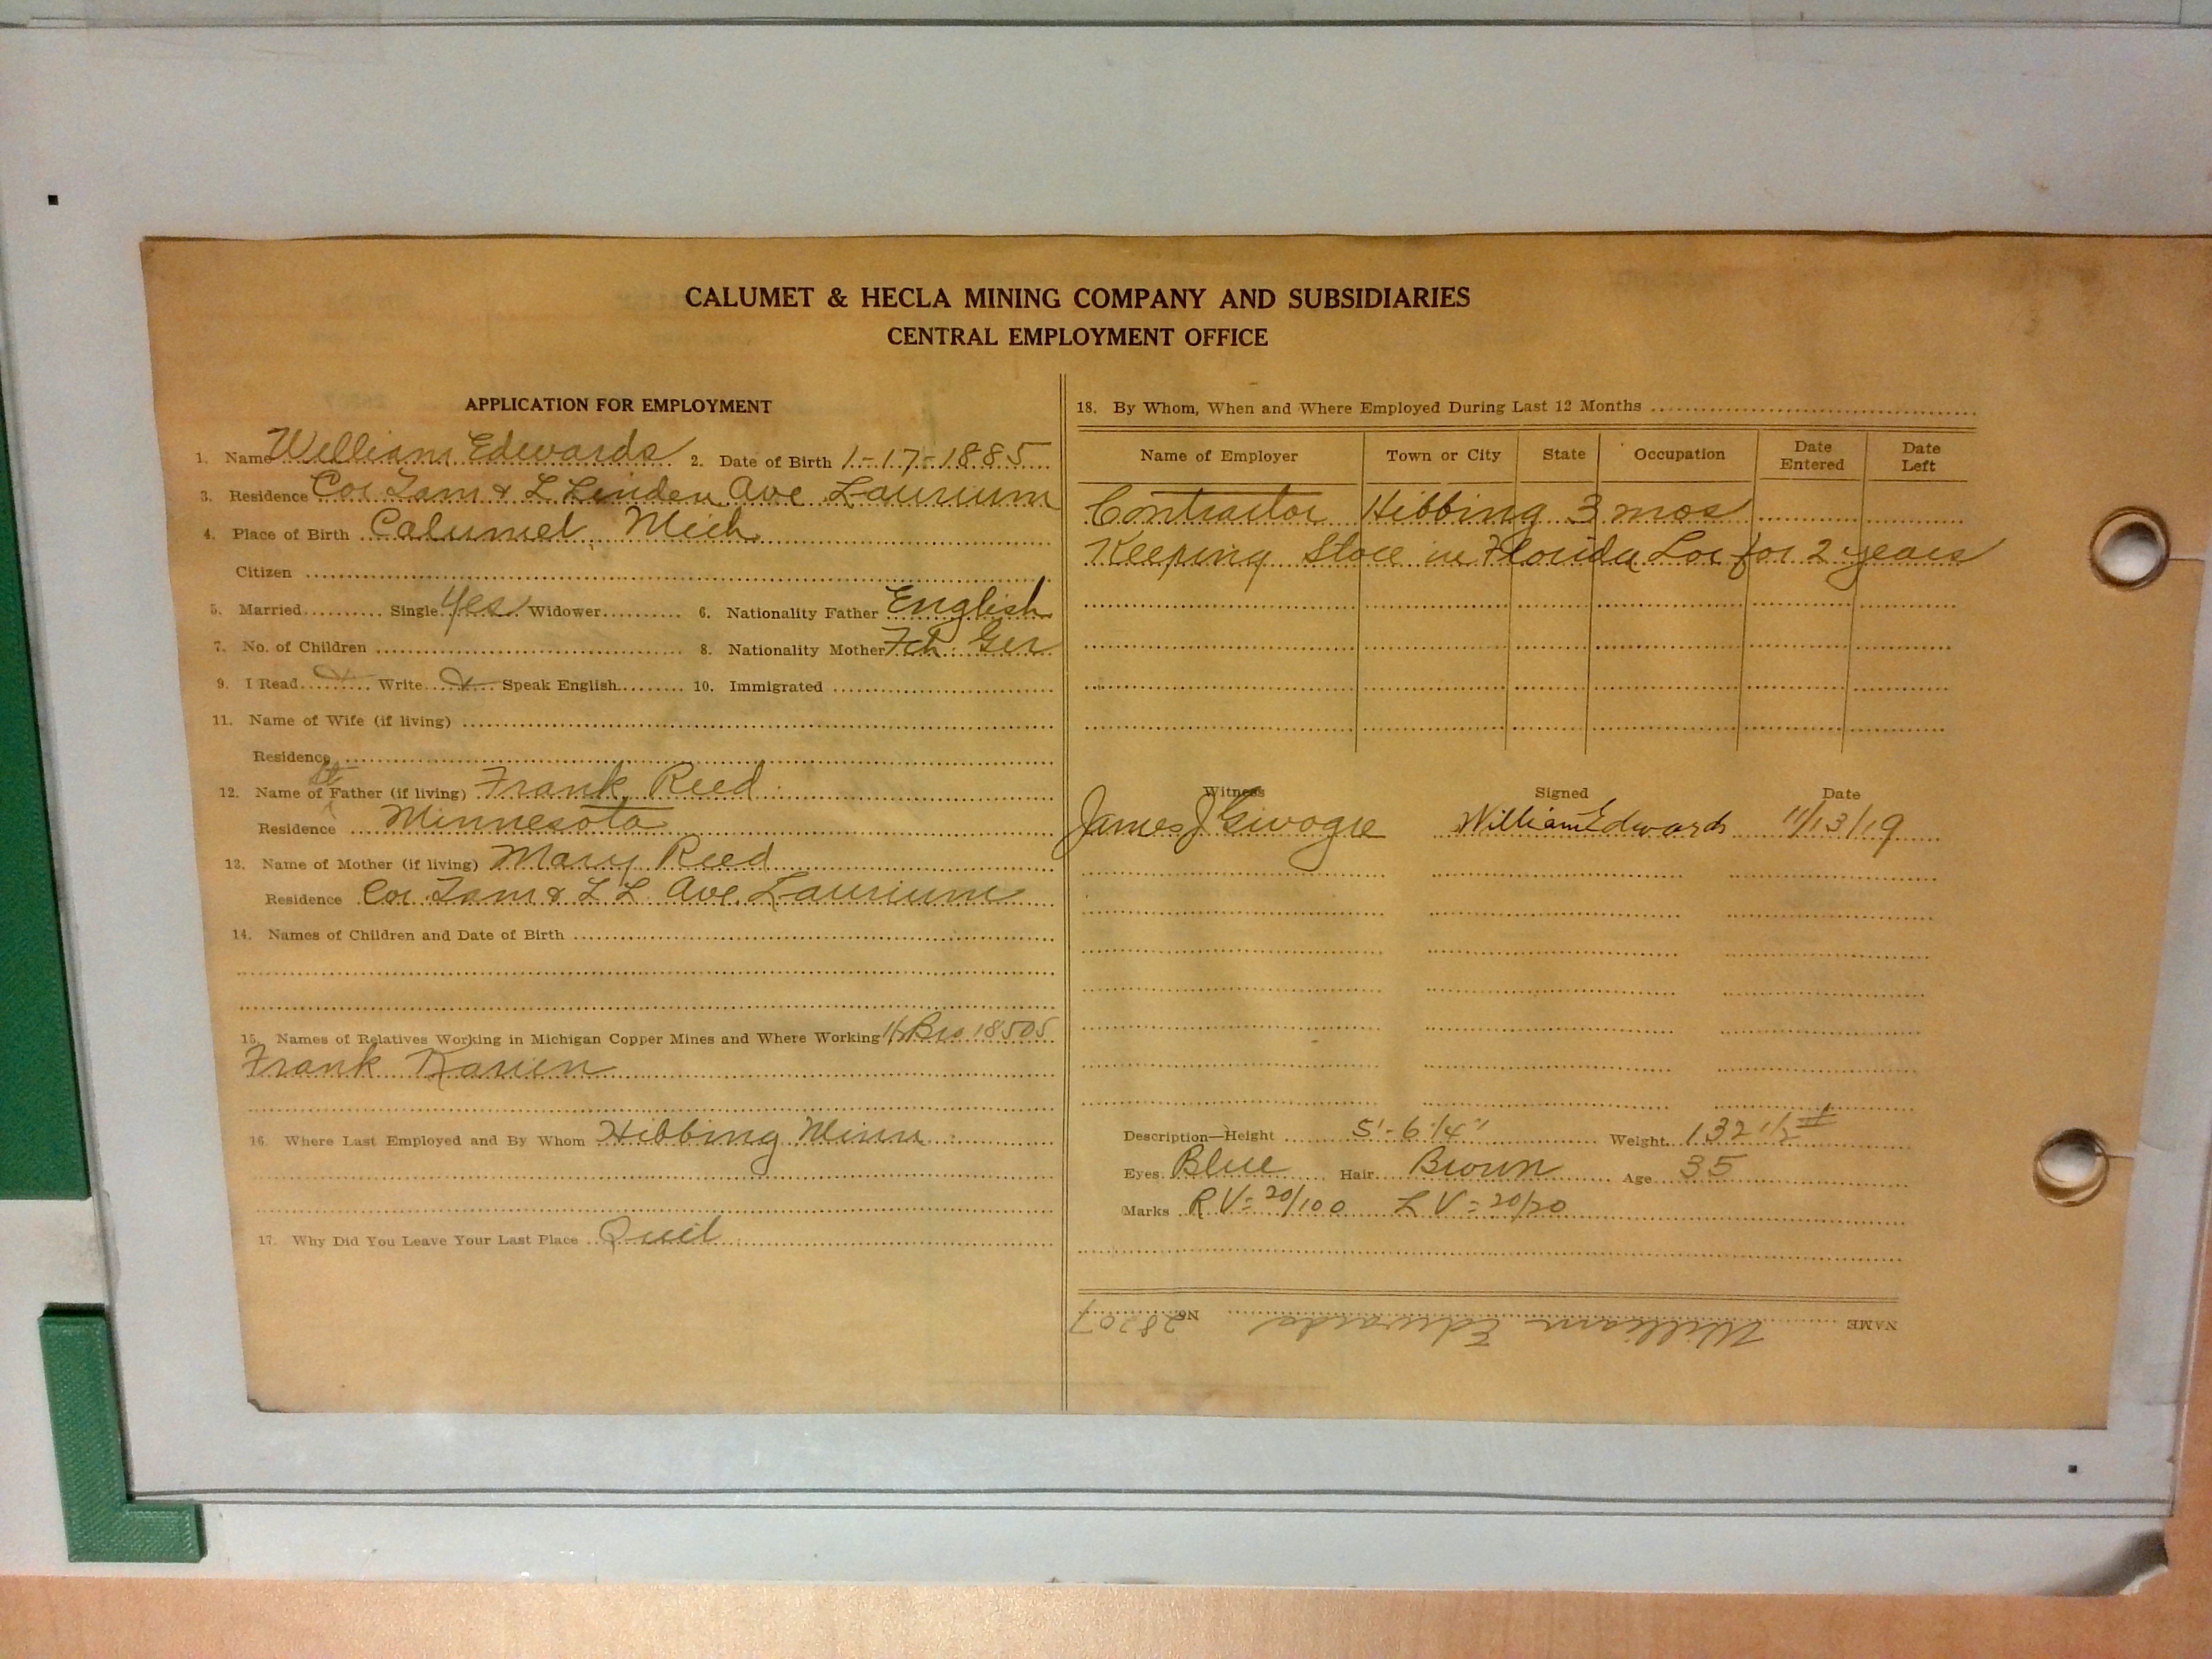 CALUMET & HECLA MINING COMPANY AND SUBSIDIARIES
CENTRAL EMPLOYMENT OFFICE
APPLICATION FOR EMPLOYMENT
1. Name William Edwards 2. Date of Birth 1-17-1885
3. Residence Cor Tam & L Linden Ave Laurium
4. Place of Birth Calumet, Mich
Citizen
5. Married Single Yes Widower 6. Nationality Father English
7. No. of Children 8. Nationality Mother Fch. Ger
9. I Read Write Speak English 10. Immigrated
11. Name of Wife (if living)
Residence
12. Name of St Father (if living) Frank Reed
Residence Minnesota
13. Name of Mother (if living) Mary Reed
Residence Cor Tam & L L Ave. Laurium
14. Names of Children and Date of Birth
15. Names of Relatives Working in Michigan Copper Mines and Where Working Bro 18505
Frank
16. Where Last Employed and By Whom Hibbing Minn
17. Why Did You Leave Your Last Place Quit
18. By Whom, When and Where Employed During Last 12 Months
Name of Employer Town or City State Occupation Date Entered Date Left
Contractor Hibbing 3 mos
Keeping Store in Florida Loc for 2 years
Witness Signed Date
James J William Edwards 11/13/19
Description—Height 5'-6 1/4" Weight 132 1/2 #
Eyes Blue Hair Brown Age 35
Marks R V = 20/100 L V = 20/20
NAME William Edwards No. 28207